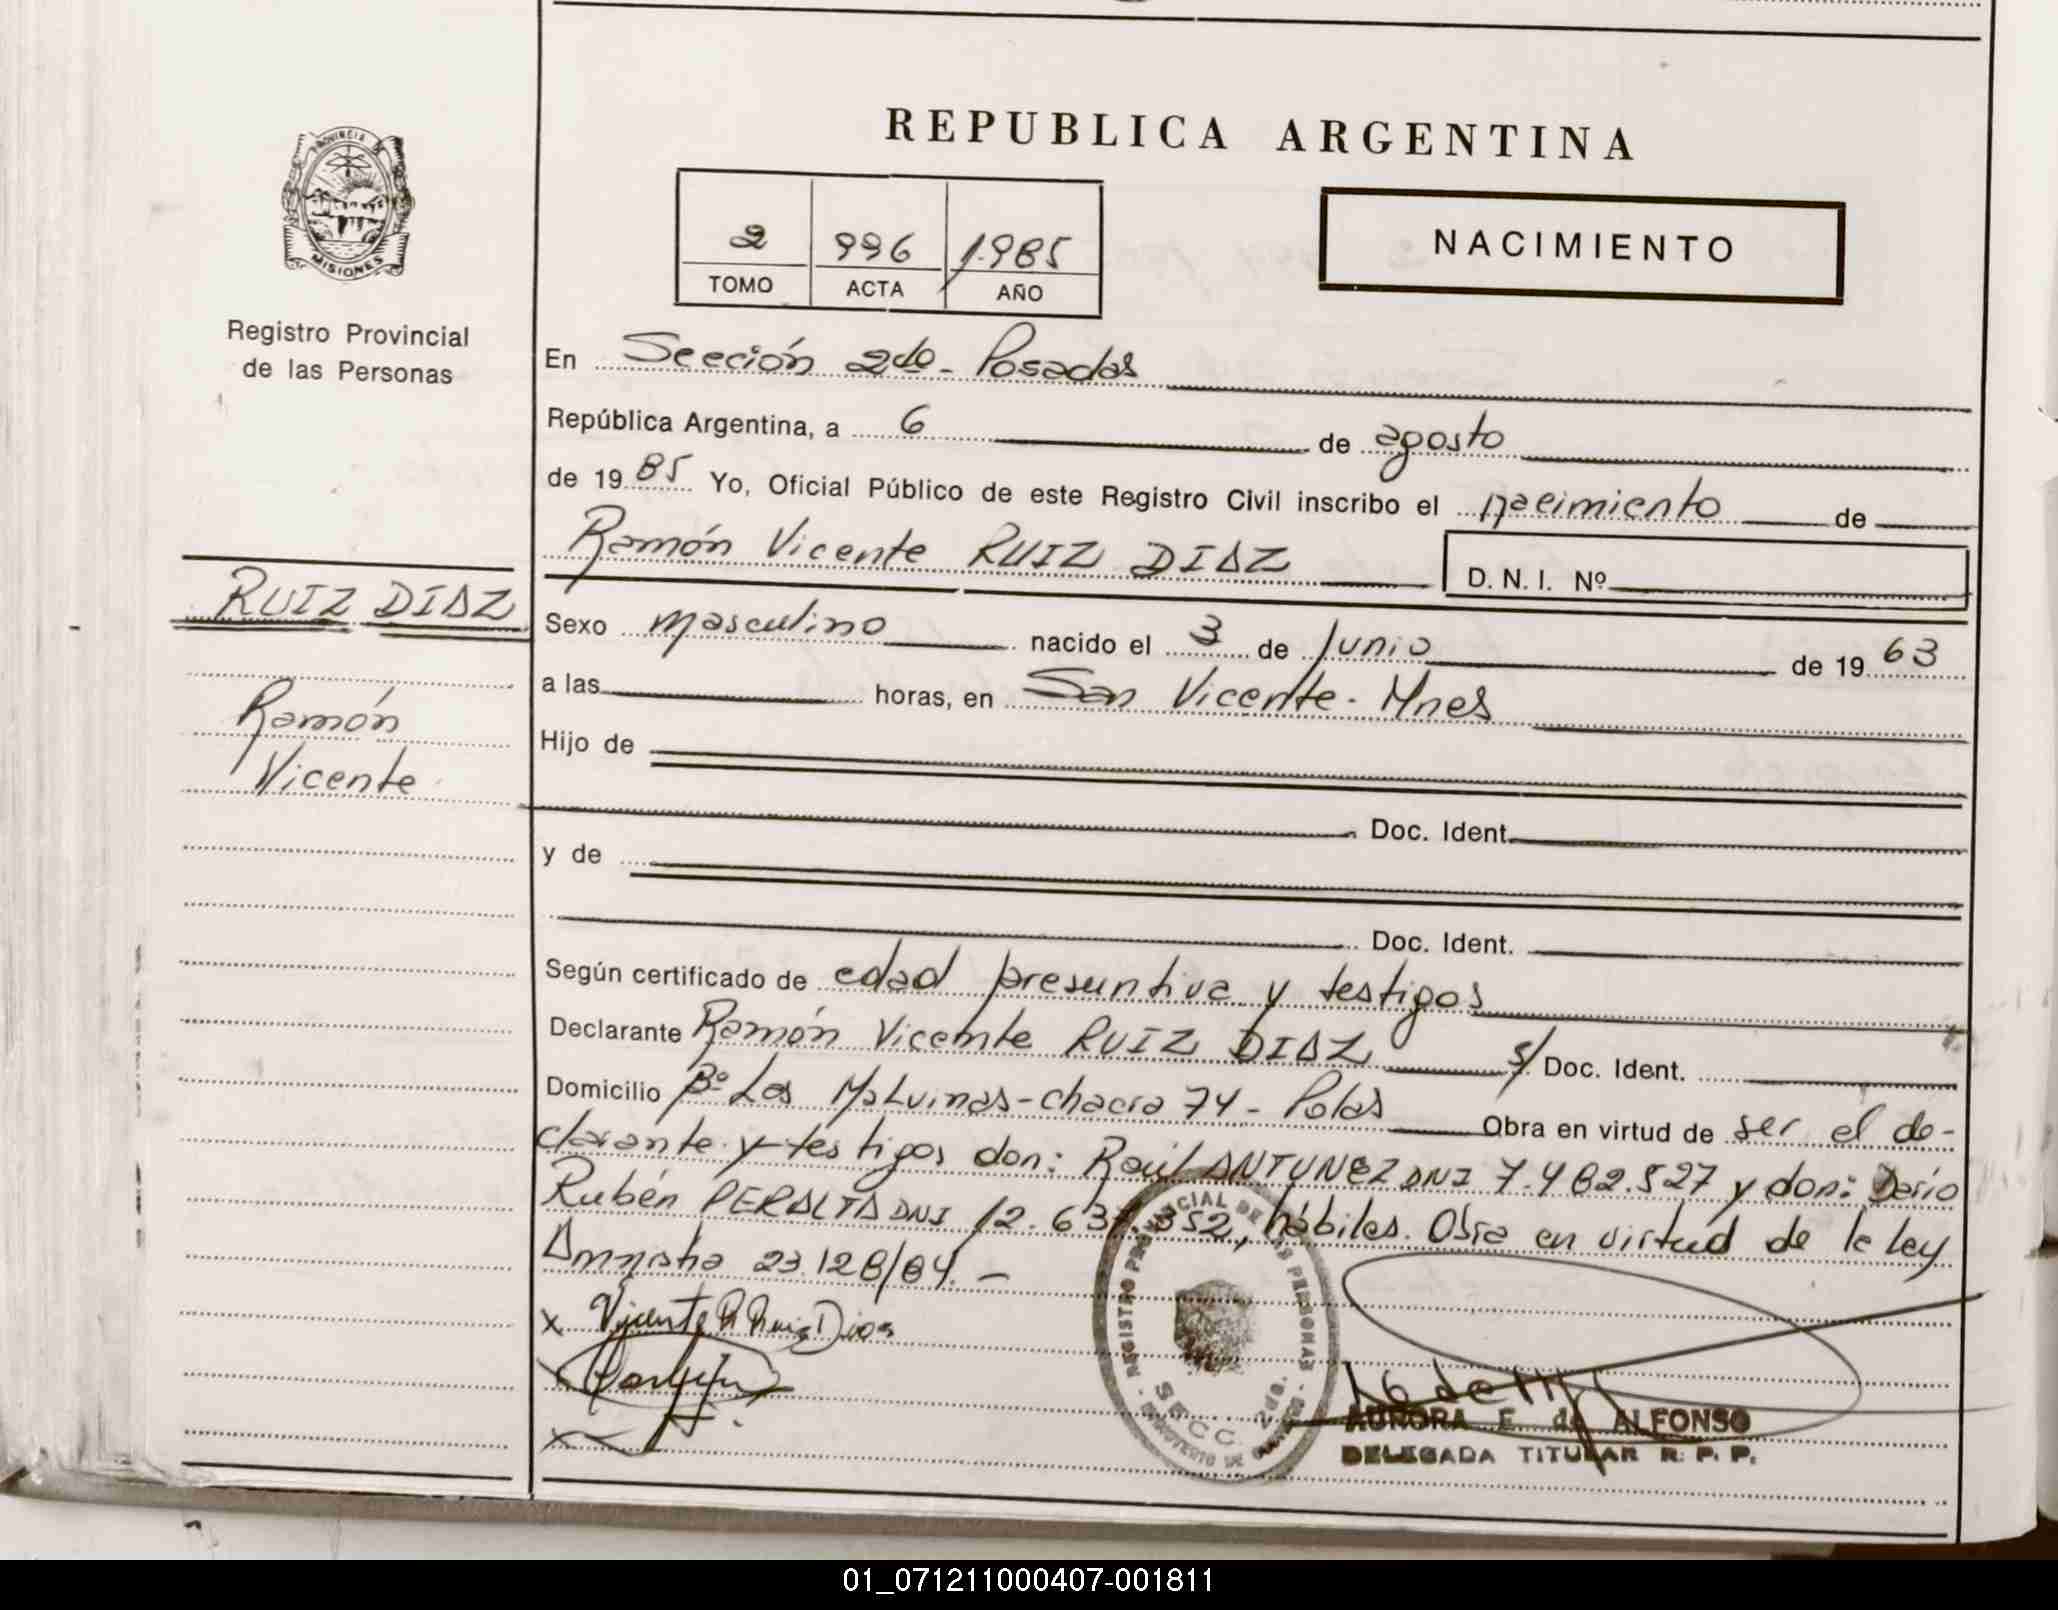 REPUBLICA ARGENTINA
PROVINCIA DE
MISIONES
Registro Provincial
de las Personas
2 996 1.985
TOMO ACTA AÑO
NACIMIENTO
En Sección 2do- Posadas
República Argentina, a 6 de agosto
de 19 85 Yo, Oficial Público de este Registro Civil inscribo el nacimiento de
Ramón Vicente RUIZ DIAZ D. N. I. Nº
RUIZ DIAZ
Ramón
Vicente
Sexo masculino nacido el 3 de Junio de 19 63
a las horas, en San Vicente- Mnes
Hijo de
Doc. Ident.
y de
Doc. Ident.
Según certificado de edad presuntiva y testigos
Declarante Ramón Vicente RUIZ DIAZ s/ Doc. Ident.
Domicilio Bº Las Malvinas-chacra 74- Pdas Obra en virtud de ser el de-
clarante y testigos don: Raúl ANTUNEZ DNI 7.482.527 y don: Dario
Rubén PERALTA DNI 12.637.352, hábiles. Obra en virtud de la ley
Amnistia 23.128/84.-
x Vicente R Ruiz Dias
x
x
REGISTRO PROVINCIAL DE LAS PERSONAS
SECC. 2da.
AURORA E. de ALFONSO
DELEGADA TITULAR R. P. P.
01_071211000407-001811